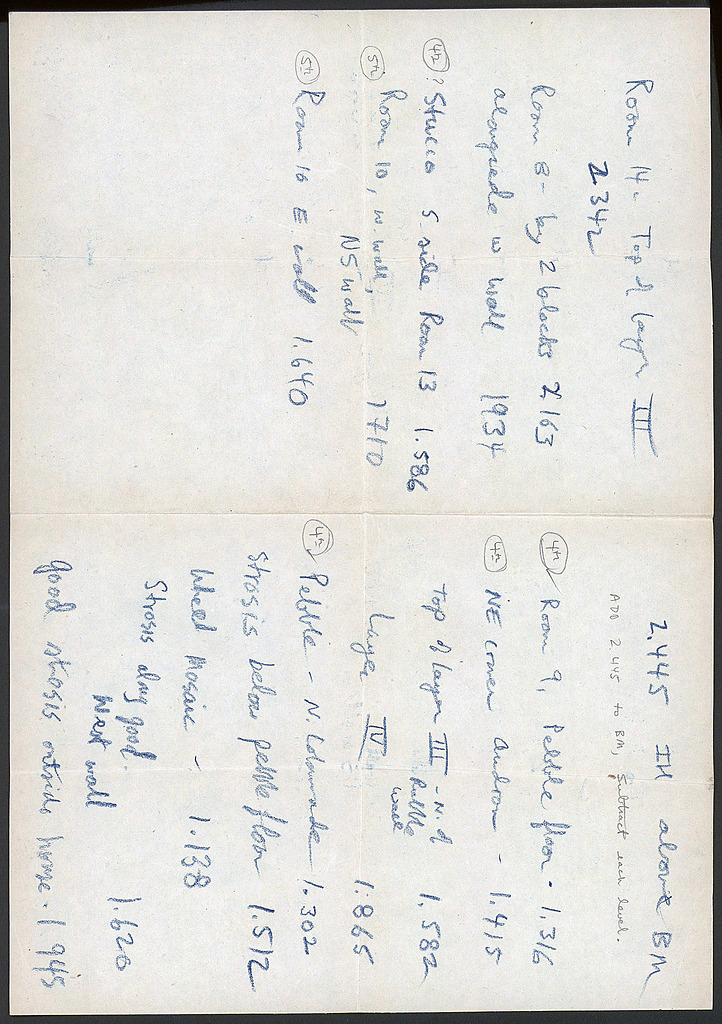 2.445 IH above BM
ADD 2.445 to BM, subtract each level.
4th Room 9, Pebble floor - 1.316
4th NE corner Andron - 1.415
Top of layer III - N. of
Rubble
wall 1.582
Layer IV 1.865
4th Pebble - N. Colonnade 1.302
Strosis below pebble floor 1.512
Wheel Mosaic - 1.138
Strosis along good
West wall 1.620
good strosis outside house - 1.945
Room 14 - Top of layer III
2.342
Room 8 - by 2 blocks 2.163
alongside w wall 1934
4th? Stucco S side Room 13 1.586
5th Room 10, w. wall,
NS wall 1710
5th Room 10 E wall 1.640